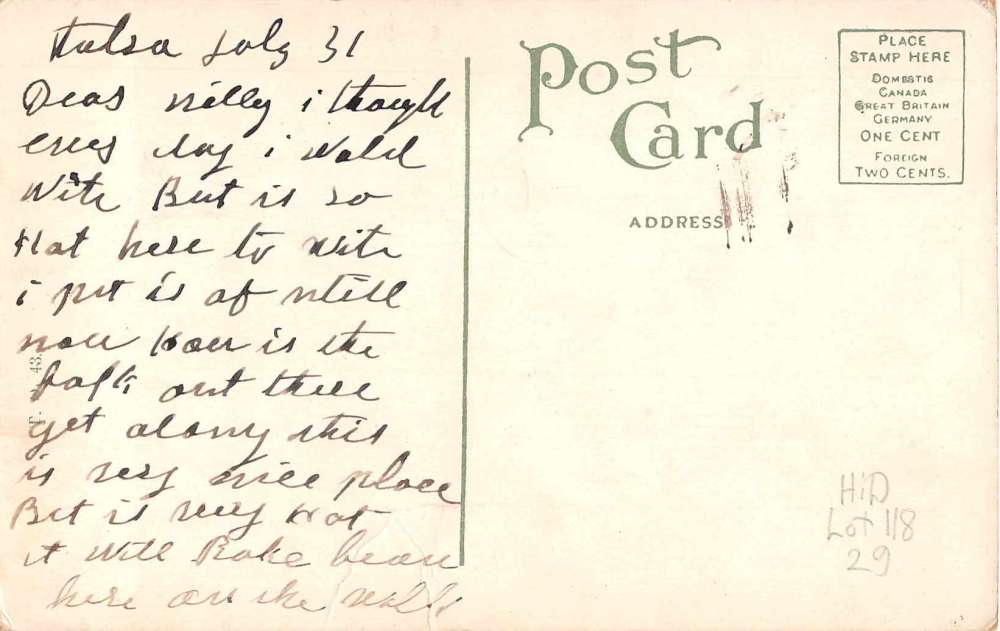 Tulsa July 31
Dear nelly i though
every day i wold
Wite But is so
Hot here to wite
i put is of ntill
now How is the
folk out there
get along this
is very nice place
But is very Hot
it Will Bake bean
here on the
POST
CARD
ADDRESS
PLACE
STAMP HERE
DOMESTIC
CANADA
GREAT BRITAIN
GERMANY
ONE CENT
FOREIGN
TWO CENTS.
43.
HiD
Lot 118
29